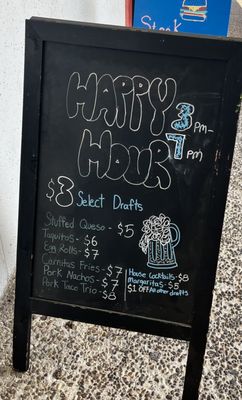 Steak
HAPPY 3 PM-
HOUR 7 PM
$3 Select Drafts
Stuffed Queso - $5
Taquitos - $6
Egg Rolls - $7
Carnitas Fries - $7
Pork Nachos - $7
Pork Taco Trio - $8
House Cocktails - $8
Margaritas - $5
$1 OFF All other drafts